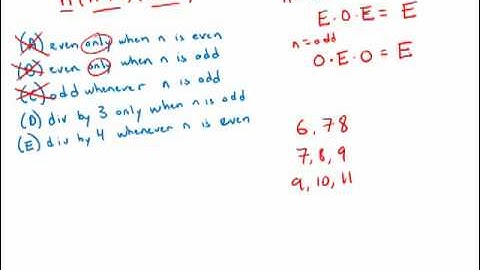 E·O·E = E
n = odd
O·E·O = E
(A) even only when n is even
(B) even only when n is odd
(C) odd whenever n is odd
(D) div by 3 only when n is odd
(E) div by 4 whenever n is even
6, 7 8
7, 8, 9
9, 10, 11